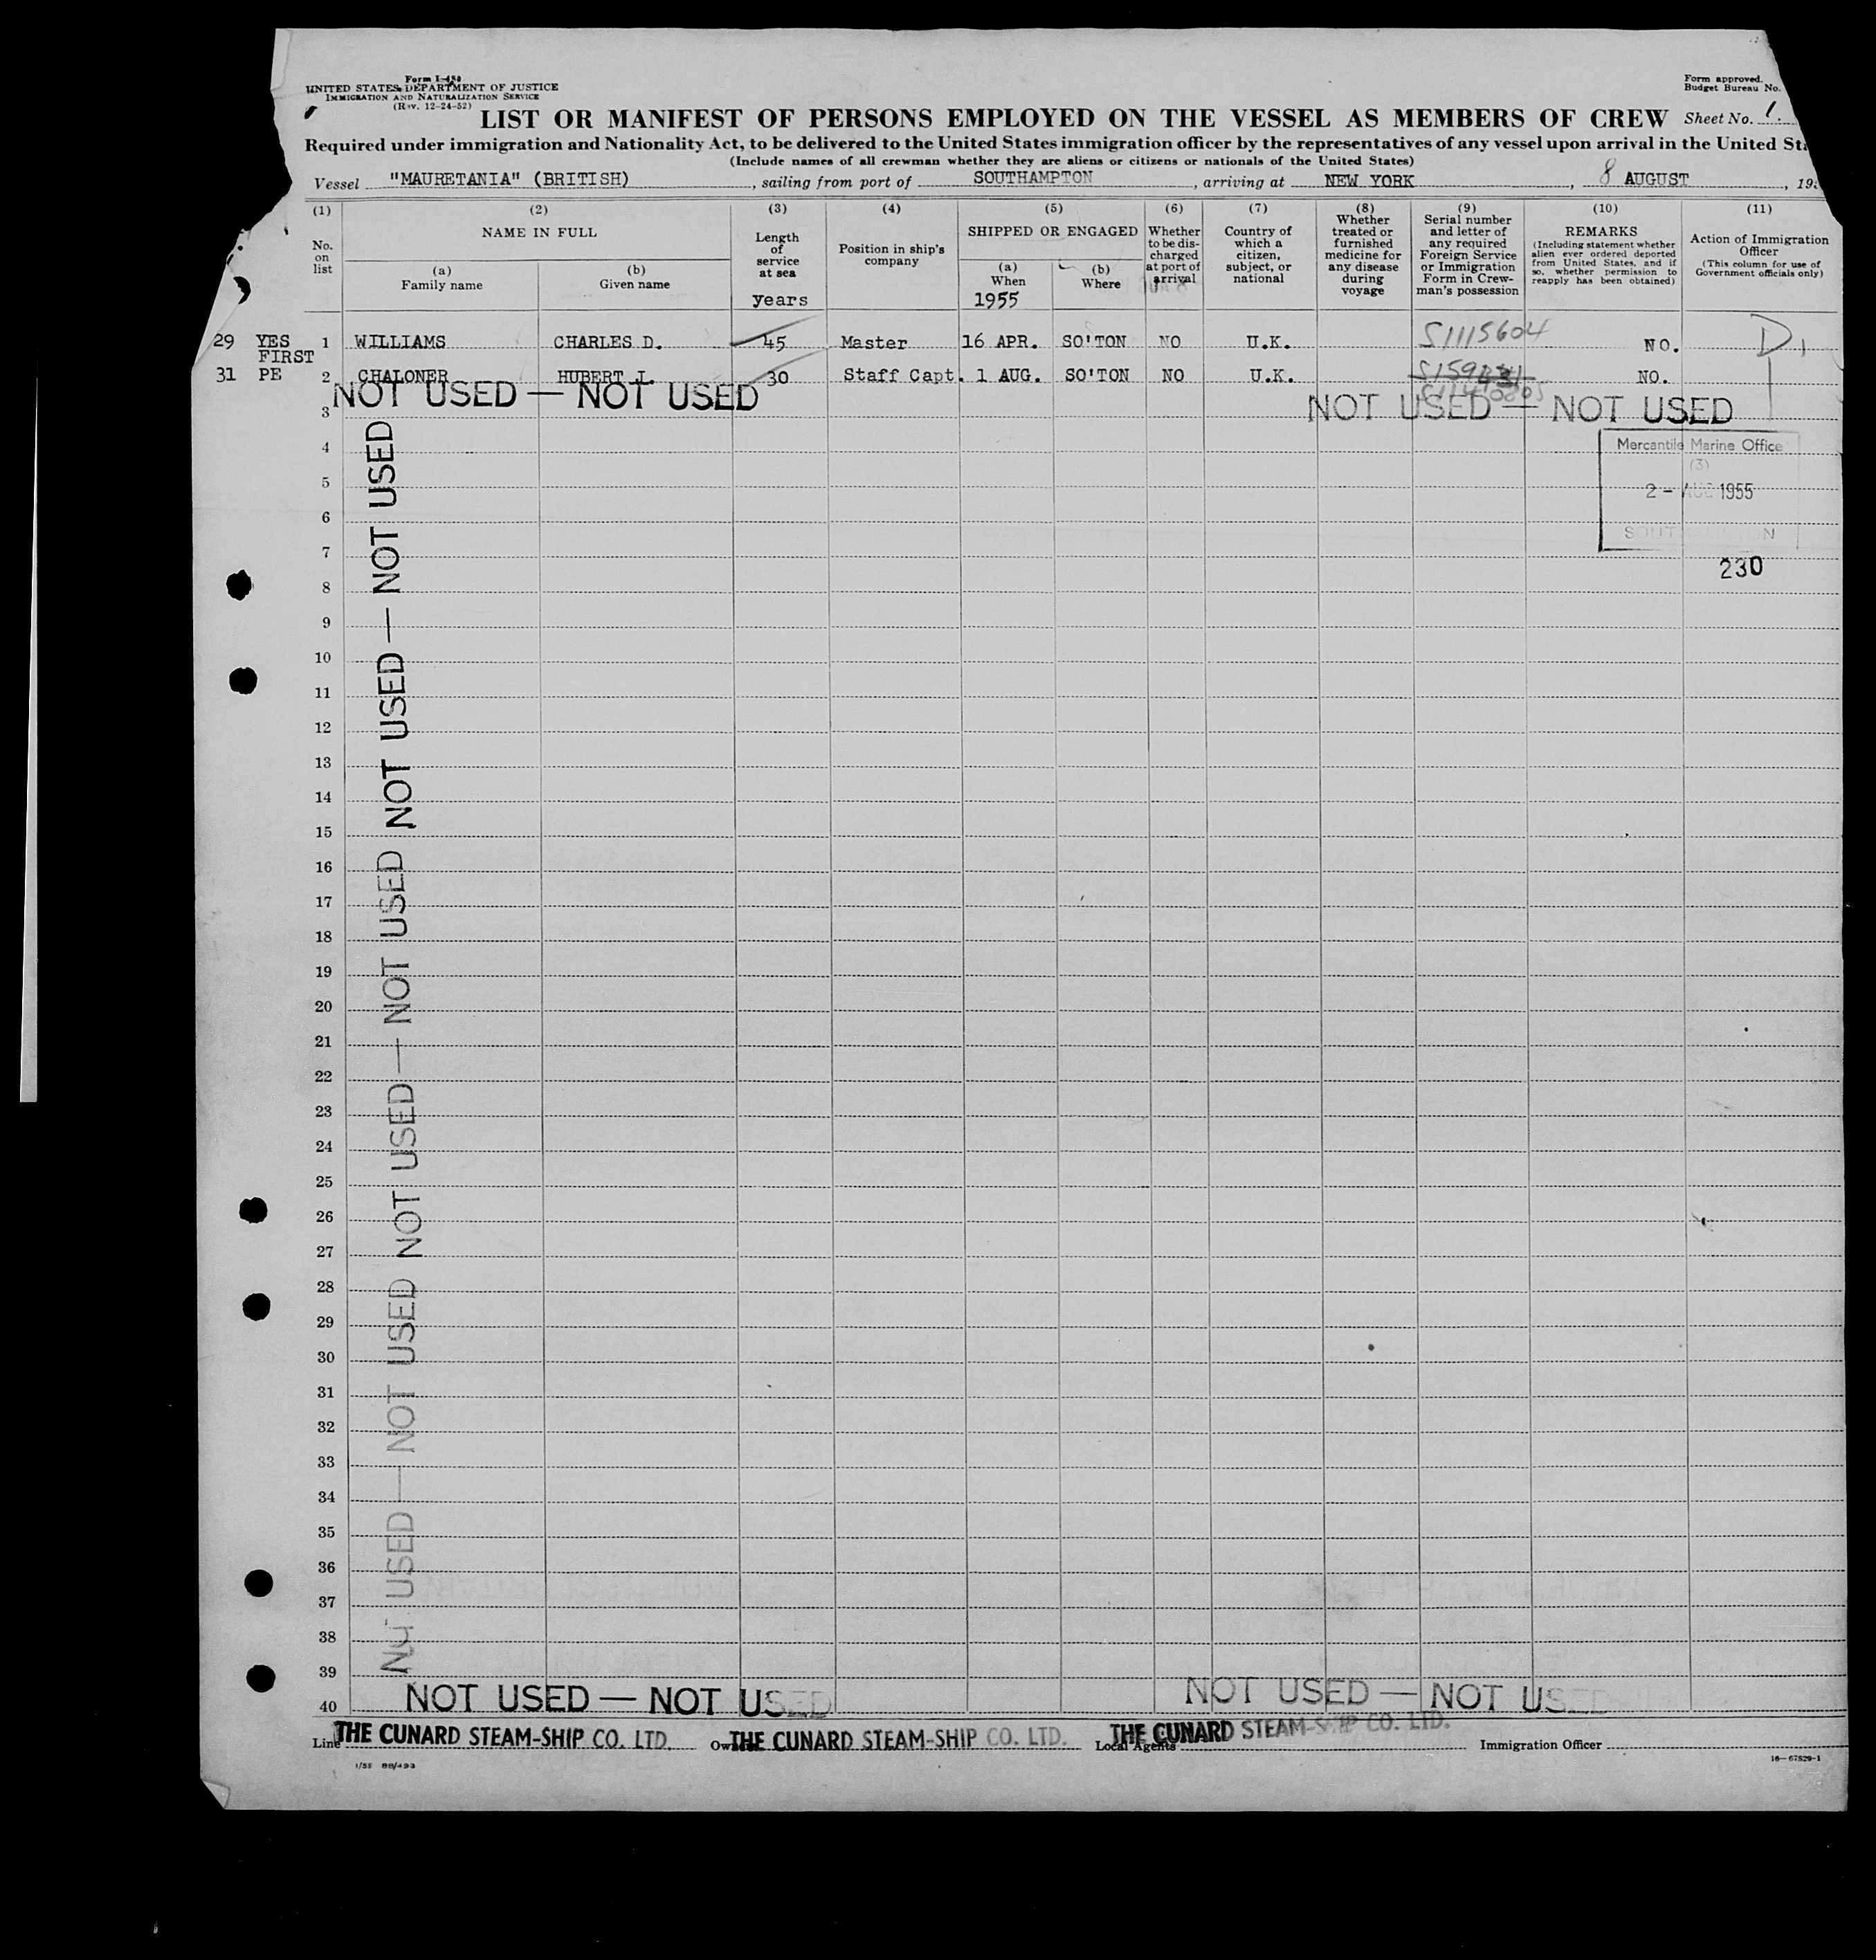 UNITED STATES DEPARTMENT OF JUSTICE
IMMIGRATION AND NATURALIZATION SERVICE
(Rev. 12-24-52)
Form approved.
Budget Bureau No.
LIST OR MANIFEST OF PERSONS EMPLOYED ON THE VESSEL AS MEMBERS OF CREW Sheet No. 1.
Required under immigration and Nationality Act, to be delivered to the United States immigration officer by the representatives of any vessel upon arrival in the United
(Include names of all crewman whether they are aliens or citizens or nationals of the United States)
Vessel "MAURETANIA" (BRITISH), sailing from port of SOUTHAMPTON, arriving at NEW YORK, 8 AUGUST
(1) (2) (3) (4) (5) (6) (7) (8) (9) (10) (11)
No. on list
NAME IN FULL
(a) Family name
(b) Given name
Length of service at sea
years
Position in ship's company
SHIPPED OR ENGAGED
(a) When
1955
(b) Where
Whether to be discharged at port of arrival
Country of which a citizen, subject, or national
Whether treated or furnished medicine for any disease during voyage
Serial number and letter of any required Foreign Service or Immigration Form in Crewman's possession
REMARKS
(Including statement whether alien ever ordered deported from United States, and if so, whether permission to reapply has been obtained)
Action of Immigration Officer
(This column for use of Government officials only)
29 YES 1 WILLIAMS CHARLES D. 45 Master 16 APR. SO'TON NO U.K. S1115604 NO. D,
FIRST
31 PE 2 CHALONER HUBERT J. 30 Staff Capt. 1 AUG. SO'TON NO U.K. NO.
NOT USED — NOT USED
NOT USED — NOT USED
3
4
Mercantile Marine Office
(3)
5
2 - AUG 1955
6
SOUTHAMPTON
7
230
8
9
10
11
12
13
14
15
16
17
18
19
20
21
22
23
24
25
26
27
28
29
30
31
32
33
34
35
36
37
38
39
40
NOT USED — NOT USED NOT USED — NOT USED NOT USED — NOT USED NOT USED — NOT USED
NOT USED — NOT USED
NOT USED — NOT USED
Line THE CUNARD STEAM-SHIP CO. LTD. Owner THE CUNARD STEAM-SHIP CO. LTD. Local Agents THE CUNARD STEAM-SHIP CO. LTD. Immigration Officer
1/55 88/493
16—67529-1